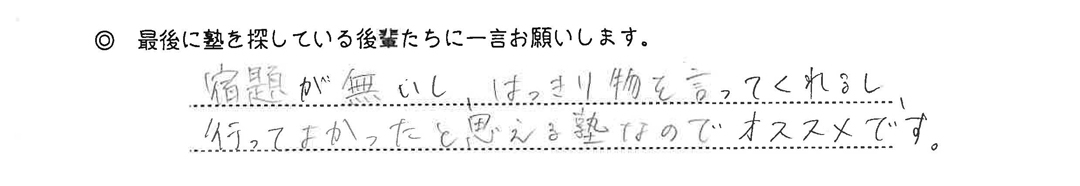 ◎ 最後に塾を探している後輩たちに一言お願いします。
宿題が無いし、はっきり物を言ってくれるし、
行ってよかったと思える塾なのでオススメです。